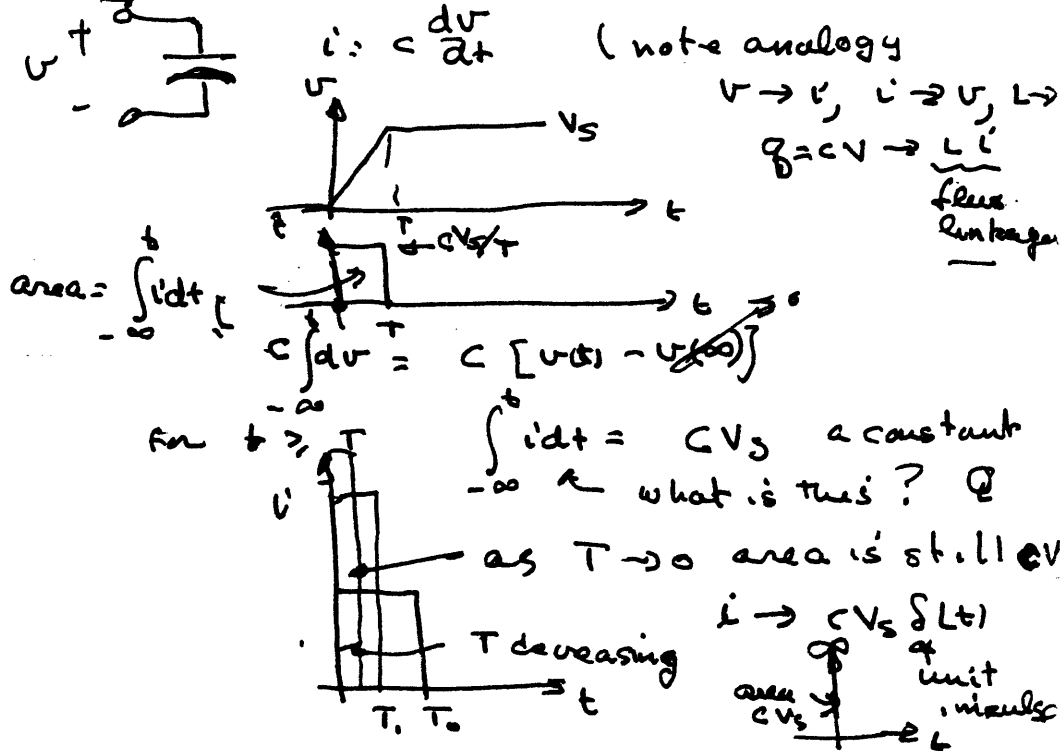 i = C dv/dt (note analogy
v + -
v → i, i → v, L →
q = CV → Li
flux
linkage
v
Vs
T
t
i
← CVs/T
area = ∫_{-∞}^{t} i dt
T
t
C ∫_{-∞}^{t} dv = C [v(t) - v(∞)] 0
For t ≥ T ∫_{-∞}^{t} i dt = CVs a constant
what is this? Q
i
as T → 0 area is still CV
i → CVs δ(t)
T decreasing
unit
impulse
∞
area
CVs
T₁ T₀
t
t